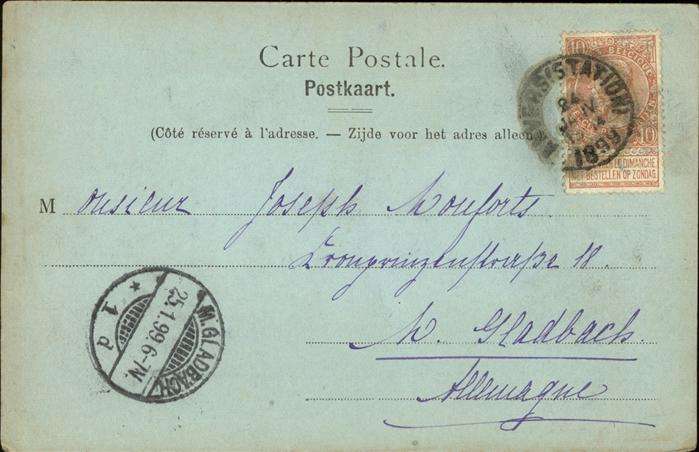 Carte Postale.
Postkaart.
(Côté réservé à l'adresse. — Zijde voor het adres alleen
Monsieur Joseph Monforts
Kronprinzenstraße 18
M. Gladbach
Allemagne
10 BELGIQUE
10
DIMANCHE
NIET BESTELLEN OP ZONDAG
(STATION)
24
1899
M. GLADBACH
25.1.99.6-7N.
* *
1
d